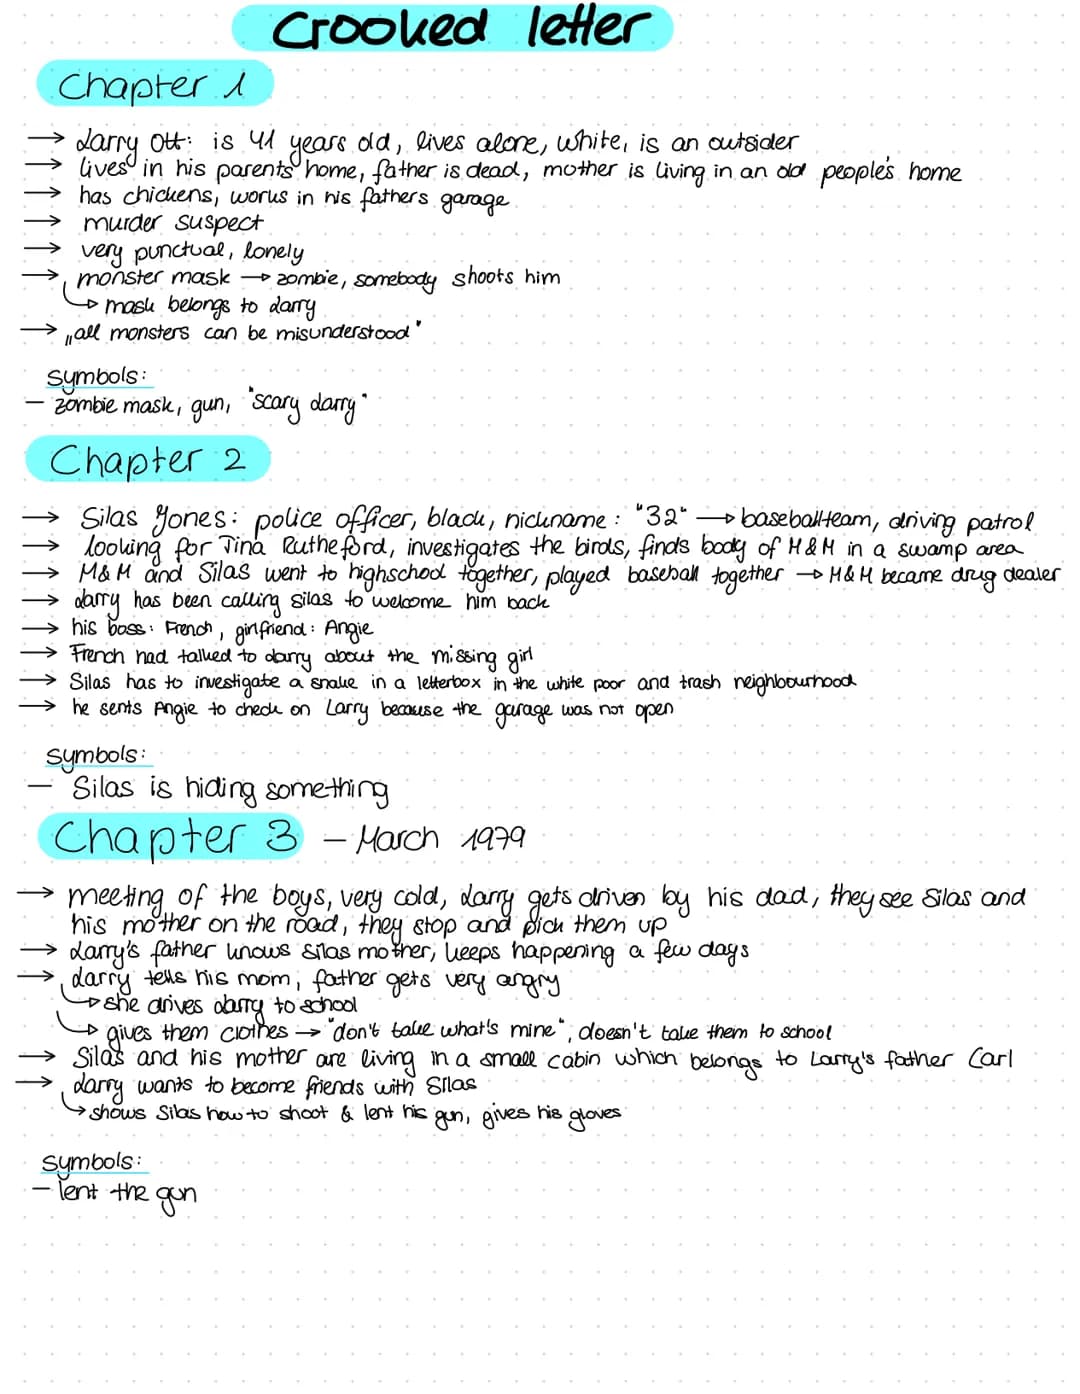 Crooked letter
Chapter 1
→ Larry Ott: is 41 years old, lives alone, white, is an outsider
→ lives in his parents home, father is dead, mother is living in an old people's home
→ has chickens, works in his fathers garage
→ murder suspect
→ very punctual, lonely
→ monster mask → zombie, somebody shoots him
↳ mask belongs to Larry
→ „all monsters can be misunderstood"
symbols:
– zombie mask, gun, "scary Larry"
Chapter 2
→ Silas Jones: police officer, black, nickname: "32" → baseballteam, driving patrol
→ looking for Tina Rutheford, investigates the birds, finds body of M&M in a swamp area
→ M&M and Silas went to highschool together, played baseball together → M&M became drug dealer
→ Larry has been calling silas to welcome him back
→ his boss: French, girlfriend: Angie
→ French had talked to Larry about the missing girl
→ Silas has to investigate a snake in a letterbox in the white poor and trash neighbourhood
→ he sents Angie to check on Larry because the garage was not open
symbols:
– Silas is hiding something
Chapter 3 – March 1979
→ meeting of the boys, very cold, Larry gets driven by his dad, they see Silas and
his mother on the road, they stop and pick them up
→ Larry's father knows silas mother, keeps happening a few days
→ Larry tells his mom, father gets very angry
↳ she drives Larry to school
↳ gives them clothes → "don't take what's mine", doesn't take them to school
→ Silas and his mother are living in a small cabin which belongs to Larry's father Carl
→ Larry wants to become friends with Silas
↳ shows Silas how to shoot & lent his gun, gives his gloves
symbols:
– lent the gun